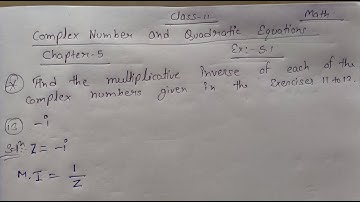 Class-11 Math
Complex Number and Quadratic Equations
Chapter-5 Ex:-5.1
Q Find the multiplicative inverse of each of the
complex numbers given in the Exercises 11 to 13.
13 -i
Solⁿ:- Z = -i
M.I = 1/Z